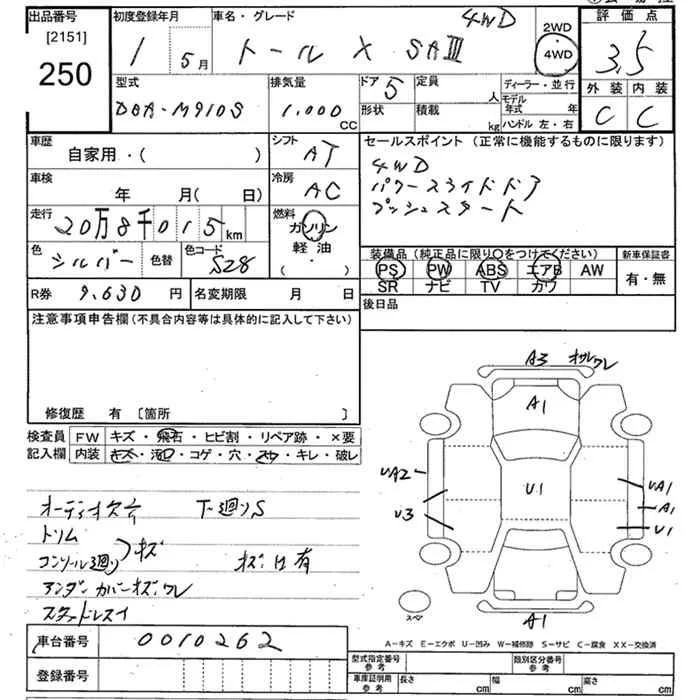 出品番号
[2151]
250
初度登録年月
1 5月
車名・グレード
4WD
トール X SAⅢ
2WD
4WD
評価点
3.5
外装 内装
C C
型式
DBA-M910S
排気量
1,000
CC
ドア 5
形状
定員
人
積載
kg
ディーラー・並行
モデル年式 年
ハンドル 左・右
車歴
自家用・( )
シフト
AT
セールスポイント (正常に機能するものに限ります)
4WD
パワースライドドア
プッシュスタート
車検
年 月( 日)
冷房
AC
走行
20万8千015km
燃料
ガソリン
軽・油
( ・ )
色
シルバー
色替
色コード
S28
装備品 (純正品に限り○をつけてください)
PS PW ABS エアB AW
SR ナビ TV カワ
新車保証書
有・無
R券 9,630 円
名変期限 月 日
後日品
注意事項申告欄 (不具合内容等は具体的に記入して下さい)
修復歴 有 [箇所 ]
検査員
記入欄
FW キズ・飛石・ヒビ割・リペア跡・×要
内装 キズ・汚れ・コゲ・穴・スレ・キレ・破レ
オーディオ欠品 下廻りS
トリム
コンソール廻り キズ
キズ凹有
アンダーカバーキズ、ワレ
スタッドレスタイヤ
A3 オサワレ
A1
UA2
U3
U1
UA1
A1
U1
スペア
A1
A-キズ E-エクボ U-凹み W-補修跡 S-サビ C-腐食 XX-交換済
車台番号
0010262
登録番号
型式指定番号
参考
類別区分番号
参考
車庫証明用
参考
長さ cm 幅 cm 高さ cm